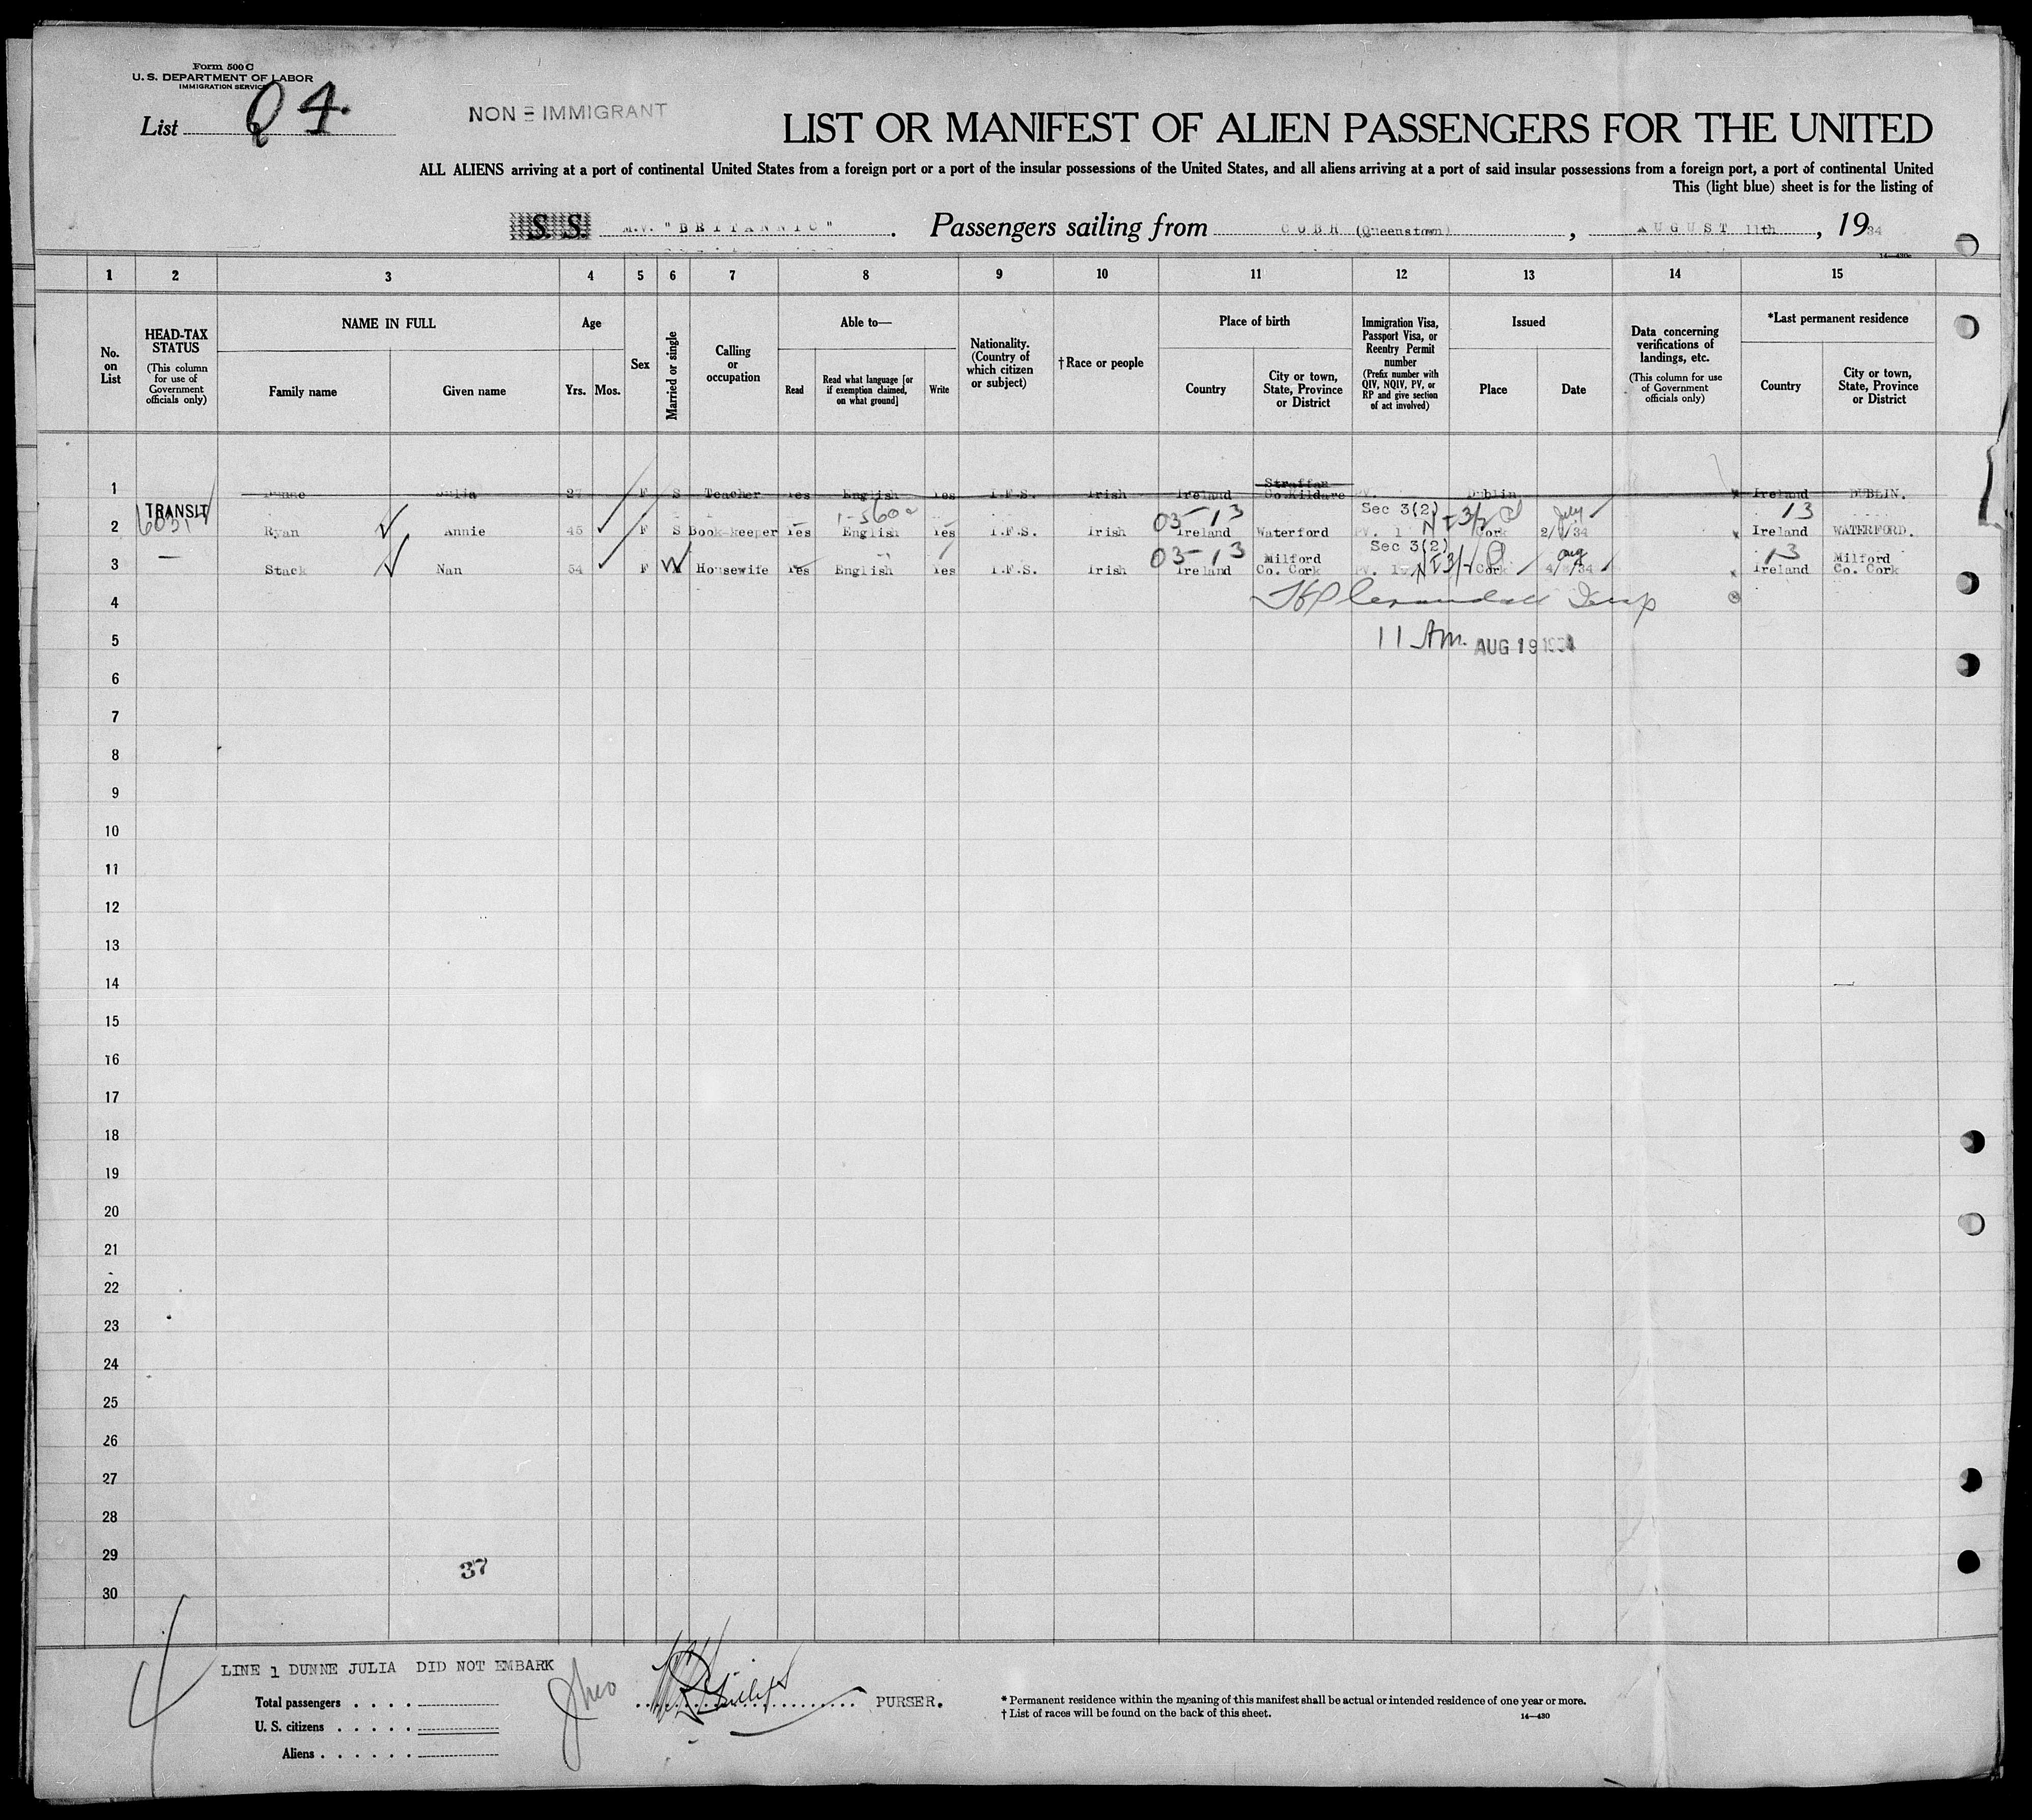 Form 500 C
U. S. DEPARTMENT OF LABOR
IMMIGRATION SERVICE
List Q 4.
NON-IMMIGRANT
LIST OR MANIFEST OF ALIEN PASSENGERS FOR THE UNITED
ALL ALIENS arriving at a port of continental United States from a foreign port or a port of the insular possessions of the United States, and all aliens arriving at a port of said insular possessions from a foreign port, a port of continental United
This (light blue) sheet is for the listing of
S. S. M.V. "BRITANNIC". Passengers sailing from COBH (Queenstown), AUGUST 11th, 1934
1 2 3 4 5 6 7 8 9 10 11 12 13 14 15
No. on List
HEAD-TAX STATUS (This column for use of Government officials only)
NAME IN FULL
Family name Given name
Age
Yrs. Mos.
Sex
Married or single
Calling or occupation
Able to—
Read Read what language [or if exemption claimed, on what ground] Write
Nationality. (Country of which citizen or subject)
† Race or people
Place of birth
Country City or town, State, Province or District
Immigration Visa, Passport Visa, or Reentry Permit number (Prefix number with QIV, NQIV, PV, or RP and give section of act involved)
Issued
Place Date
Data concerning verifications of landings, etc. (This column for use of Government officials only)
*Last permanent residence
Country City or town, State, Province or District
14—430c
1 Dunne Julia 27 F S Teacher Yes English Yes I.F.S. Irish Ireland Straffan Co.Kildare PV. Dublin Ireland DUBLIN.
TRANSIT
6031
2 Ryan Annie 45 F S Book-keeper Yes English Yes I.F.S. Irish 03-13 Ireland Waterford Sec 3(2) PV. Cork 2/July/34 13 Ireland WATERFORD.
3 Stack Nan 54 F W Housewife Yes English Yes I.F.S. Irish 03-13 Ireland Milford Co. Cork Sec 3(2) PV. Cork 4/Aug/34 13 Ireland Milford Co. Cork
4 Insp
5 11 Am. AUG 19 1934
6
7
8
9
10
11
12
13
14
15
16
17
18
19
20
21
22
23
24
25
26
27
28
29
37
30
LINE 1 DUNNE JULIA DID NOT EMBARK
Total passengers . . . .
U. S. citizens . . . . .
Aliens . . . . . .
PURSER.
* Permanent residence within the meaning of this manifest shall be actual or intended residence of one year or more.
† List of races will be found on the back of this sheet.
14—430